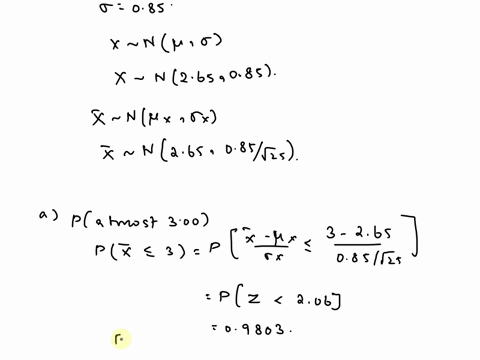 σ = 0.85.
X ~ N(μ, σ)
X ~ N(2.65, 0.85).
x̄ ~ N(μx, σx)
x̄ ~ N(2.65, 0.85/√25).
a) P(atmost 3.00)
P(x̄ ≤ 3) = P[(x̄ - μx)/σx ≤ (3 - 2.65)/(0.85/√25)]
= P[Z < 2.06]
= 0.9803.